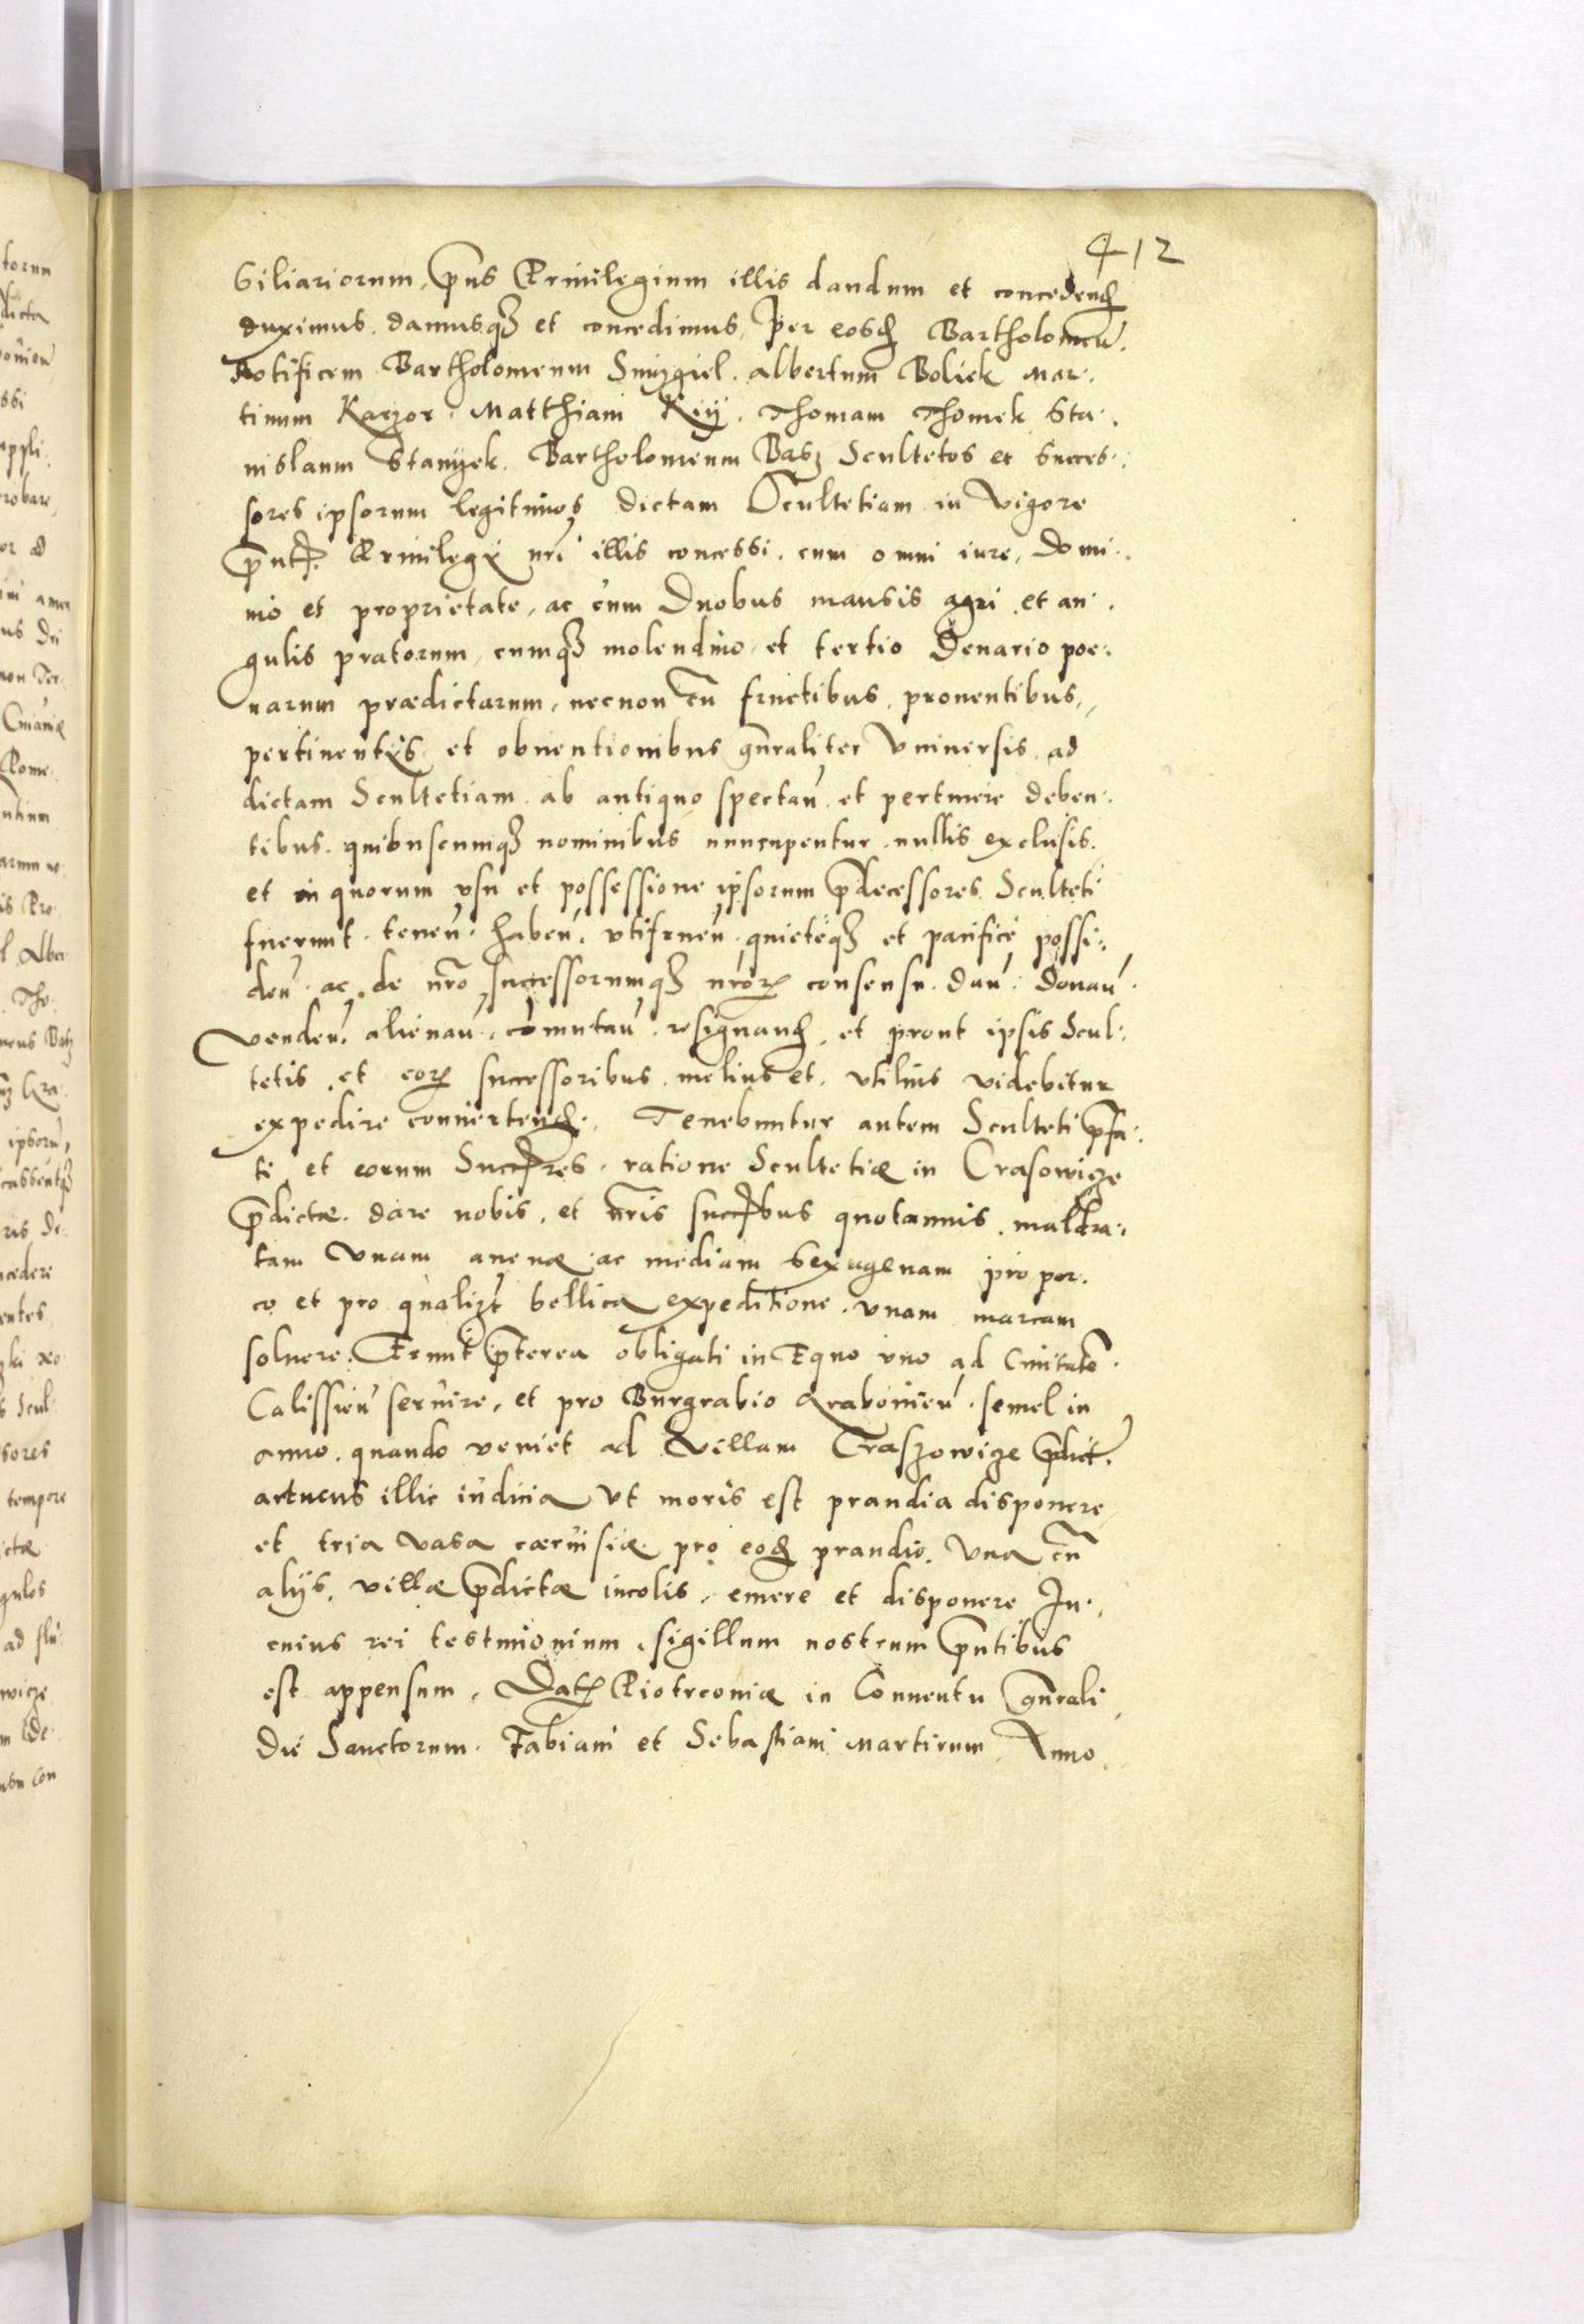 412
siliariorum, pñs Priuilegium illis dandum et concedend
duximus. damusq3 et concedimus, Per eosd Bartholomeũ.
Rotificem Bartholomeum Smygiel. albertum Boliek Mar.
tinum Kaczor. Matthiam Kiÿ. Thomam Thomek Sta.
nislaum Stanyek. Bartholomeum Basz Scultetos et succes.
sores ipsorum legitimos dictam Scultetiam in vigore
pñt. Priuilegÿ nrĩ illis concessi. cum omni iure, Domi.
nio et proprietate, ac cum Duobus mansis agri et an.
gulis pratorum, cumq3 molendino, et tertio Denario poe:
narum prædictarum, necnon cũ fructibus, prouentibus,
pertinentÿs et obuentionibus gñraliter vniuersis. ad
dictam Scultetiam ab antiquo spectañ et pertinere deben:
tibus. quibuscumq3 nominibus nuncupentur. nullis exclusis.
et in quorum vsu et possessione ipsorum pdecessores Sculteti
fuerunt. teneñ. habeñ. vtifrueñ. quietèq3 et pacificè possi:
deñ. ac de nr̃o successorumq3 nror consensu. dañ. donañ.
vendeñ. alienañ. cõmutañ. resignand, et prout ipsis Scul:
tetis et eor successoribus melius et vtilius videbitur
expedire conuertend. Tenebuntur autem Sculteti pfa:
ti et eorum Succres. ratione Scultetiæ in Crasowicze
pdictæ. dare nobis, et nr̃is succbus quotannis maldra.
tam vnam auenæ ac mediam sexagenam pro por.
co et pro qualizt bellica expeditione. vnam marcam
soluere. Erunt pterea obligati in Equo vno ad Ciuitatẽ
Calissieñ seruire, et pro Burgrabio Araboñieñ. semel in
anno. quando veniet ad villam Craszowicze pdict.
acturus illic iudicia vt moris est prandia disponere,
et tria vasa cæruisiæ pro eod prandio. vna cũ
alÿs. villæ pdictæ incolis, emere et disponere In.
cuius rei testimonium, sigillum nostrum pñtibus
est appensum, Dat Piotrconiæ in Conuentu gñrali
Die Sanctorum. Fabiani et Sebastiani Martirum Anno.